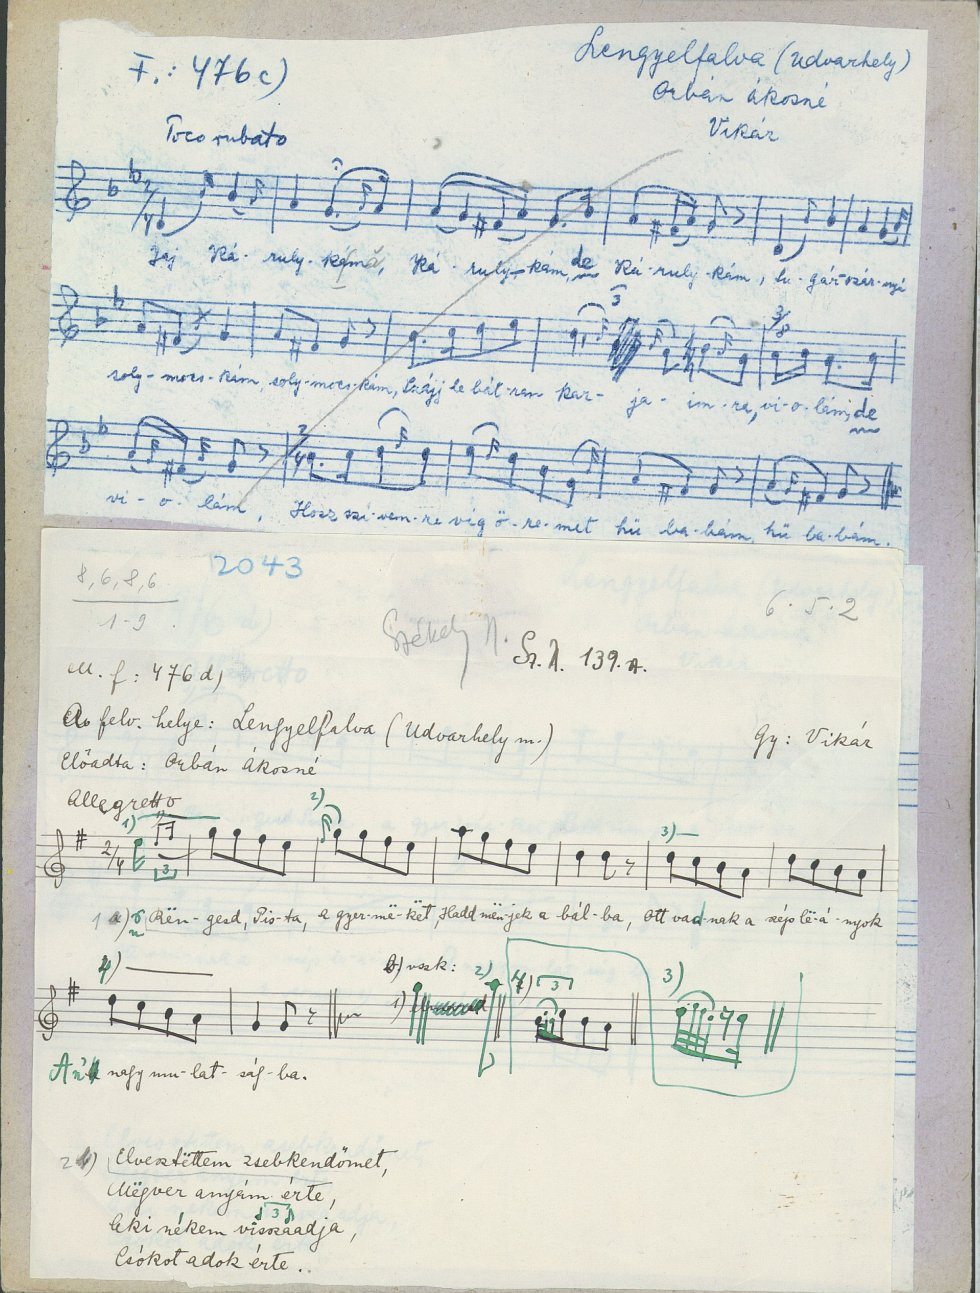 F.: 476c)
Lengyelfalva (Udvarhely)
Orbán Ákosné
Vikár
Poco rubato
Jaj Ká-ruly-kámá, Ká-ruly-kám, de Ká-ruly-kám, su-gár-szár-nyú
soly-mocs-kám, soly-mocs-kám, le bát-ran kar-ja-im-ra, vi-o-lám, de
vi-o-lám, Hozz szí-vem-re víg ö-re-met hű ba-bám, hű ba-bám.
2043
8,6,8,6
1-9
6·5·2
Székely N.
Sz. N. 139.a.
M. f: 476 d)
A felv. helye: Lengyelfalva (Udvarhely m.)
Gy: Vikár
Előadta: Orbán Ákosné
Allegretto
1) 3 2) 3)
1 a) Rën-gesd, Pis-ta, a gyer-më-két, Hadd mën-jek a bál-ba, Ott vad-nak a szép lë-á-nyok
4) b) vszk: 1) 2) 4) 3 3)
nagy mu-lat-ság-ba.
2 Elvesztëttem zsebkendőmet,
Mëgver anyám érte,
3
Aki nékem visszaadja,
Csókot adok érte..